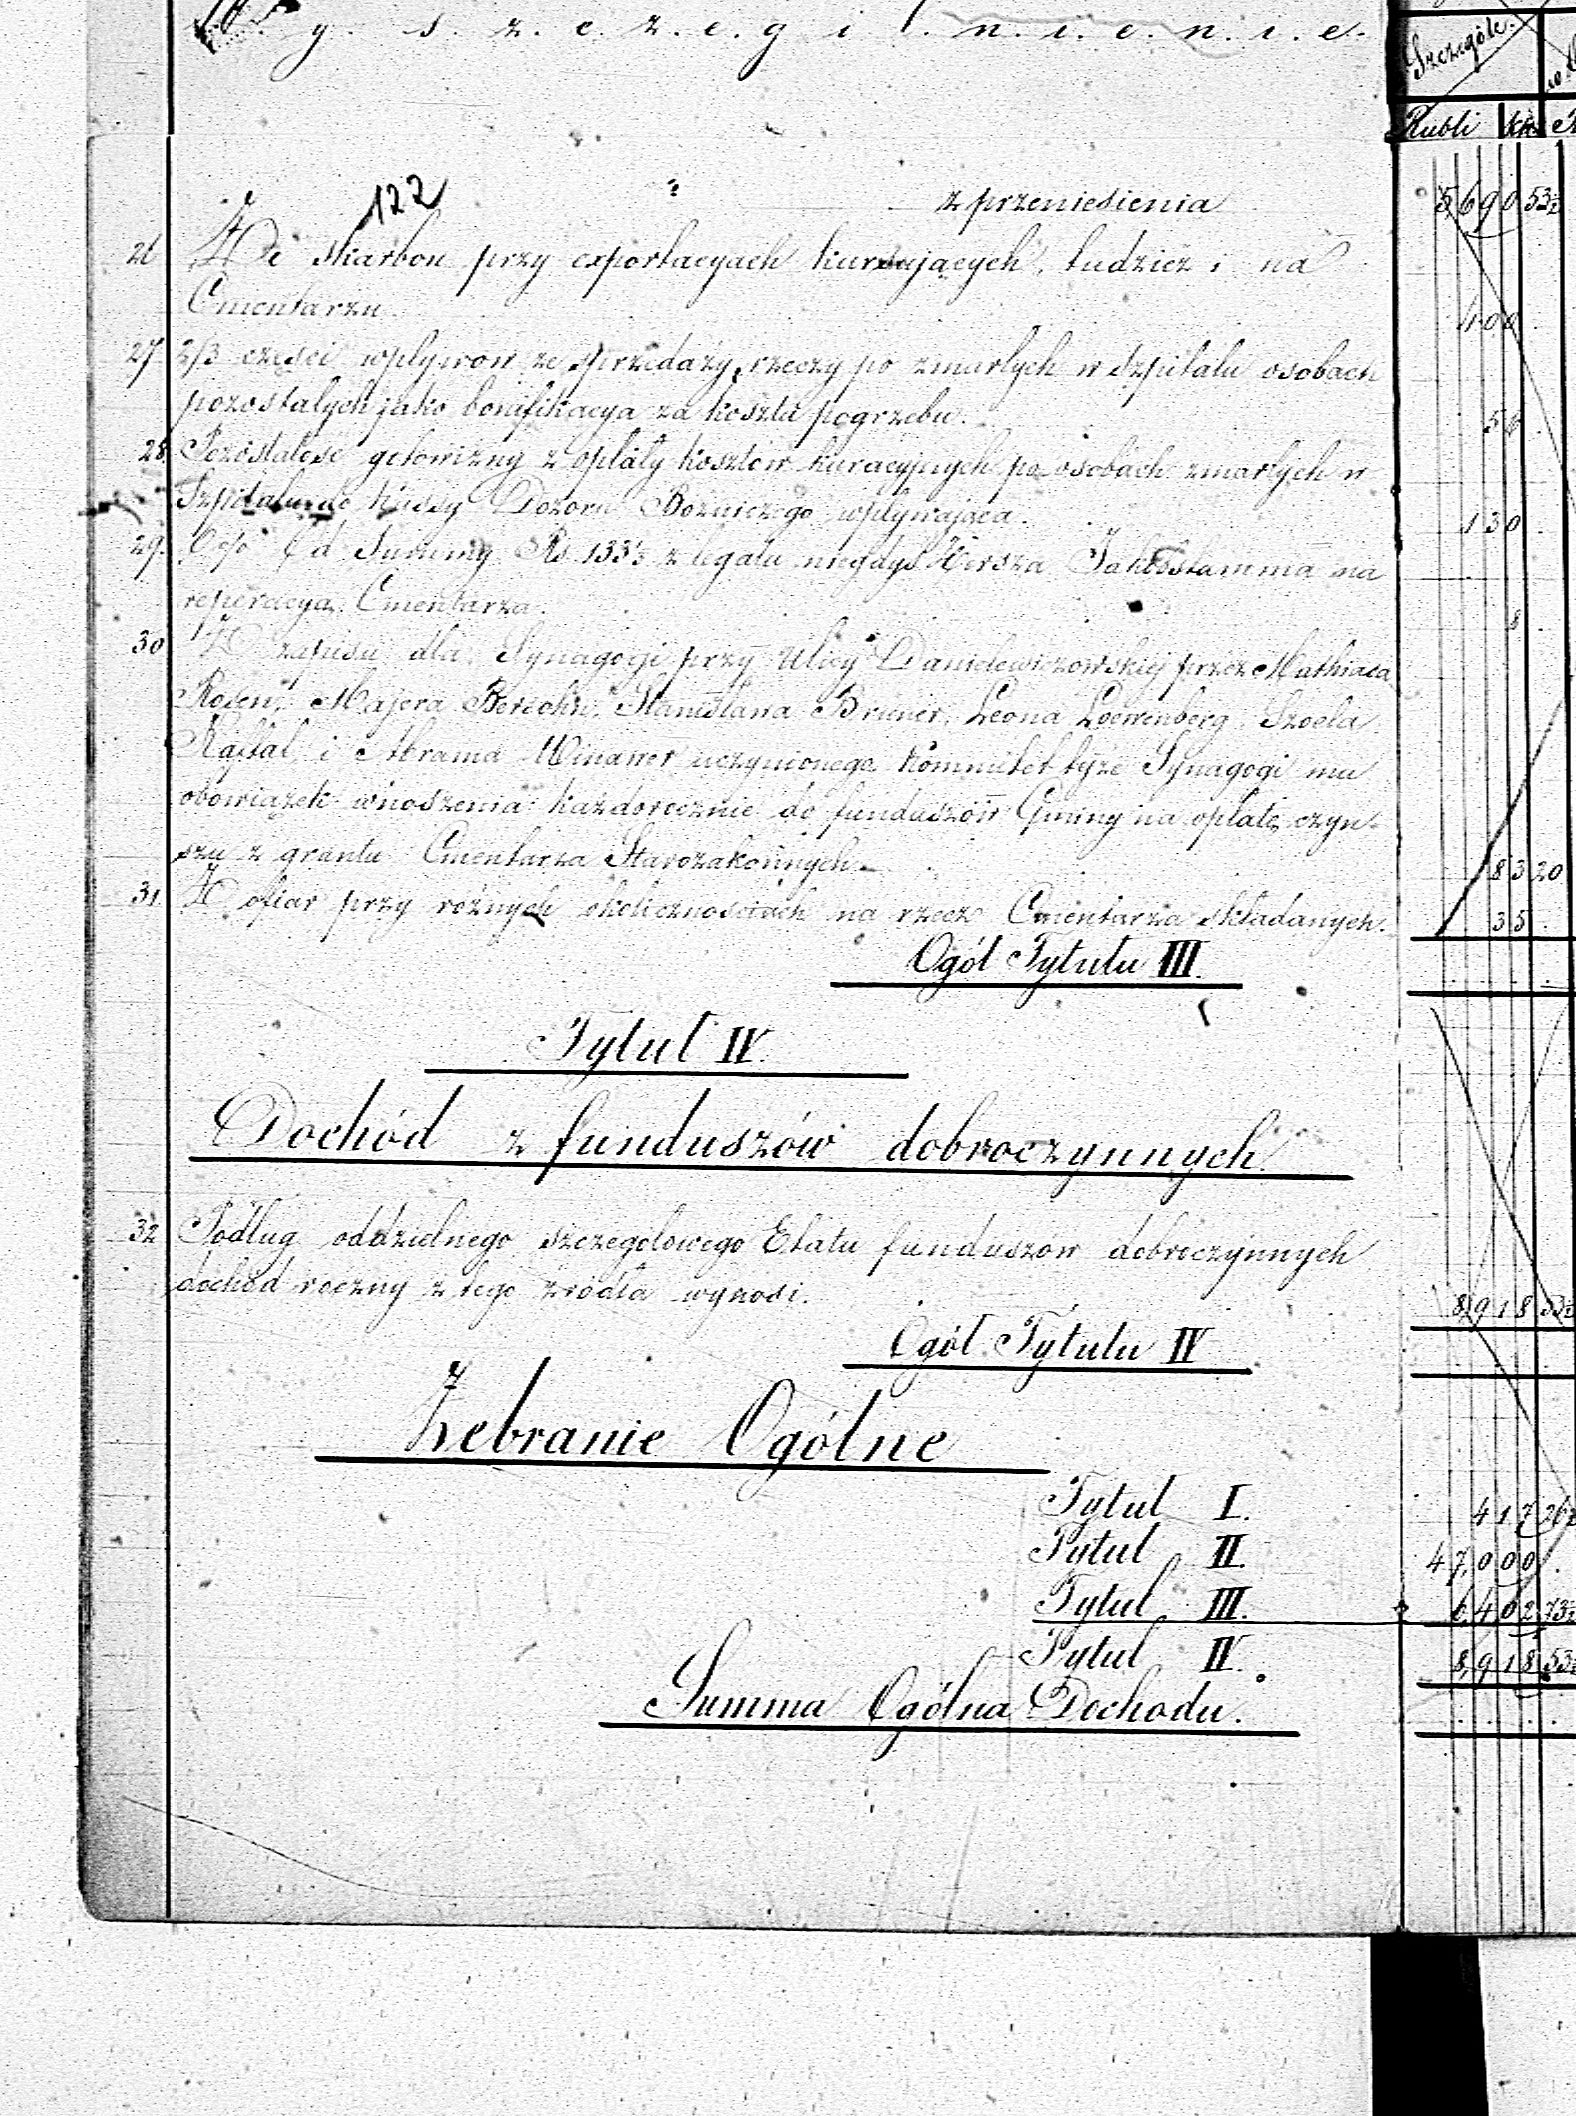 W. y. s. z. c. z. e. g. ó. l. n. i. e. n. i. e.
Szczególe
Rubli
122
z przeniesienia 5690 53½
26 Ze skarbon przy exportacyach kursujących, tudzież i na
Cmentarzu. 400
27 2/3 części wpływów ze sprzedaży rzeczy po zmarłych w Szpitalu osobach
pozostałych jako bonifikacya za koszta pogrzebu. 56
28 Pozostałość gotowizny z opłaty kosztów kuracyjnych po osobach zmarłych w
Szpitalu do Kassy Dozoru Bożniczego wpływająca. 130
29. 6% Od Summy Rs. 133⅓ z legatu niegdyś Hersza Jakobstamma na
reperacyą Cmentarza. 8
30 Z zapisu dla Synagogi przy Ulicy Danielewiczowskiej przez Mathiasa
Rosen, Majera Bersohn, Stanisława Bruner, Leona Loewenberg, Szoela
Naftal i Abrama Winawer uczynionego Kommitet tyże Synagogi ma
obowiązek wnoszenia każdorocznie do funduszów Gminy na opłatę czyn-
szu z gruntu Cmentarza Starozakonnych. 83 20
31 Z ofiar przy różnych okolicznościach na rzecz Cmentarza składanych. 35
Ogół Tytułu III.
Tytuł IV.
Dochód z funduszów dobroczynnych
32 Podług oddzielnego szczegółowego Etatu funduszów dobroczynnych
dochód roczny z tego źródła wynosi. 8,918 53½
Ogół Tytułu IV
Zebranie Ogólne
Tytuł I. 417 26½
Tytuł II. 47,000
Tytuł III. 6,402 73½
Tytuł IV. 8,918 53½
Summa Ogólna Dochodu.